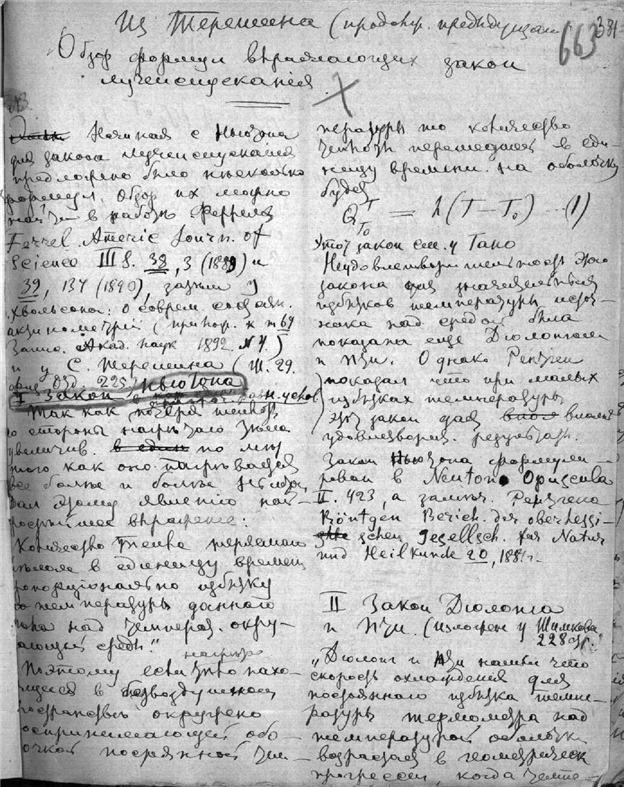 Из Терешина (продолж. предыдущаго
663
381
Обзор формул выражающих закон
лучеиспускания
Начиная с Ньютона
для закона лучеиспускания
предложено было несколько
формул. Обзор их можно
найти в работе Ферреля
Ferrel. Americ Journ. of
Science III S. 38, 3 (1889) и
39, 137 (1890) затем у
Хвольсона: О соврем. состоян.
актинометрiи (прилож. к т 69
Запис. Акад. наук 1892 № 4)
и у С. Терешина (Ж. 29.
физ. 225)
I Закон Ньютона
Так как потеря теплоты
со стороны нагретаго тела
увелич. по мере
того как оно нагревается
все больше и больше Ньютон
дал этому явлению
выражение:
Количество тепла теряемаго
телом в единицу времени
пропорцiонально избытку
температуры даннаго
тела над температ. окру-
жающей среды"
Поэтому если тело нахо-
дящееся в безвоздушном
пространстве окружено
воспринимающей обо-
лочкой постоянной тем-
пературы то количество
теплоты перешедшей в еди-
ницу времени на оболочку
будет
Q^T_{T₀} = h (T – T₀) ... (1)
Этот закон см. у Тано
Неудовлетворительность этого
закона для значительных
избытков температуры источ-
ника над средой была
показана еще Дюлонгом
и Пти. Однако Рентген
показал что при малых
избытках температуры
этот закон дает вполне
удовлетворит. результат.
Закон Ньютона формули-
рован в Newton Opuscula
II. 423, а замеч. Рентгена
Röntgen Berich. der oberhessi-
schen Gesellsch. für Natur
und Heilkunde 20, 1881 г.
II Закон Дюлонга
и Пти. (изложен у Шимкова
228 стр.
„Дюлонг и Пти нашли что
скорость охлаждения для
постояннаго избытка темпе-
ратуры термометра над
температурой оболочки
возрастает в геометрическ
прогрессии, когда темпе-